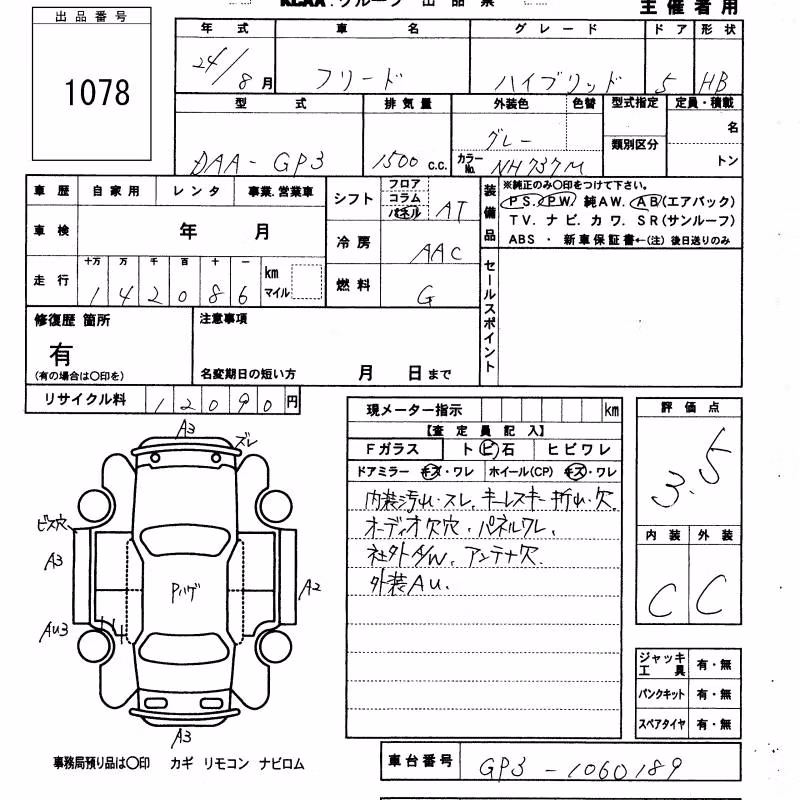 KCAA.グループ 出品票
主催者用
出品番号
1078
年式 車名 グレード ドア 形状
24/8月 フリード ハイブリッド 5 HB
型式 排気量 外装色 色替 型式指定 定員・積載
類別区分
名
DAA-GP3 1500 c.c. グレー カラーNo. NH737M トン
車歴 自家用 レンタ 事業.営業車
車検 年 月
走行 十万 万 千 百 十 一
1 4 2 0 8 6 km マイル
シフト フロア コラム パネル AT
冷房 AAC
燃料 G
装備品
※純正のみ〇印をつけて下さい。
PS. PW. 純AW. AB(エアバック)
TV. ナビ. カワ. SR(サンルーフ)
ABS ・ 新車保証書←(注) 後日送りのみ
セールスポイント
修復歴 箇所
有
(有の場合は〇印を)
注意事項
名変期日の短い方 月 日まで
リサイクル料 12090円
現メーター指示 km
【査定員記入】
Fガラス ト ビ 石 ヒビワレ
ドアミラー キズ・ワレ ホイール(CP) キズ・ワレ
内装汚れ・スレ、キーレスキー折れ・欠、
オーディオ欠穴・パネルワレ、
社外A/W、アンテナ欠
外装AU.
評価点
3.5
内装 外装
C C
A3
ズレ
ビス穴
A3
AU3
Pハゲ
A2
A3
ジャッキ工具 有・無
パンクキット 有・無
スペアタイヤ 有・無
事務局預り品は〇印 カギ リモコン ナビロム
車台番号 GP3-1060189